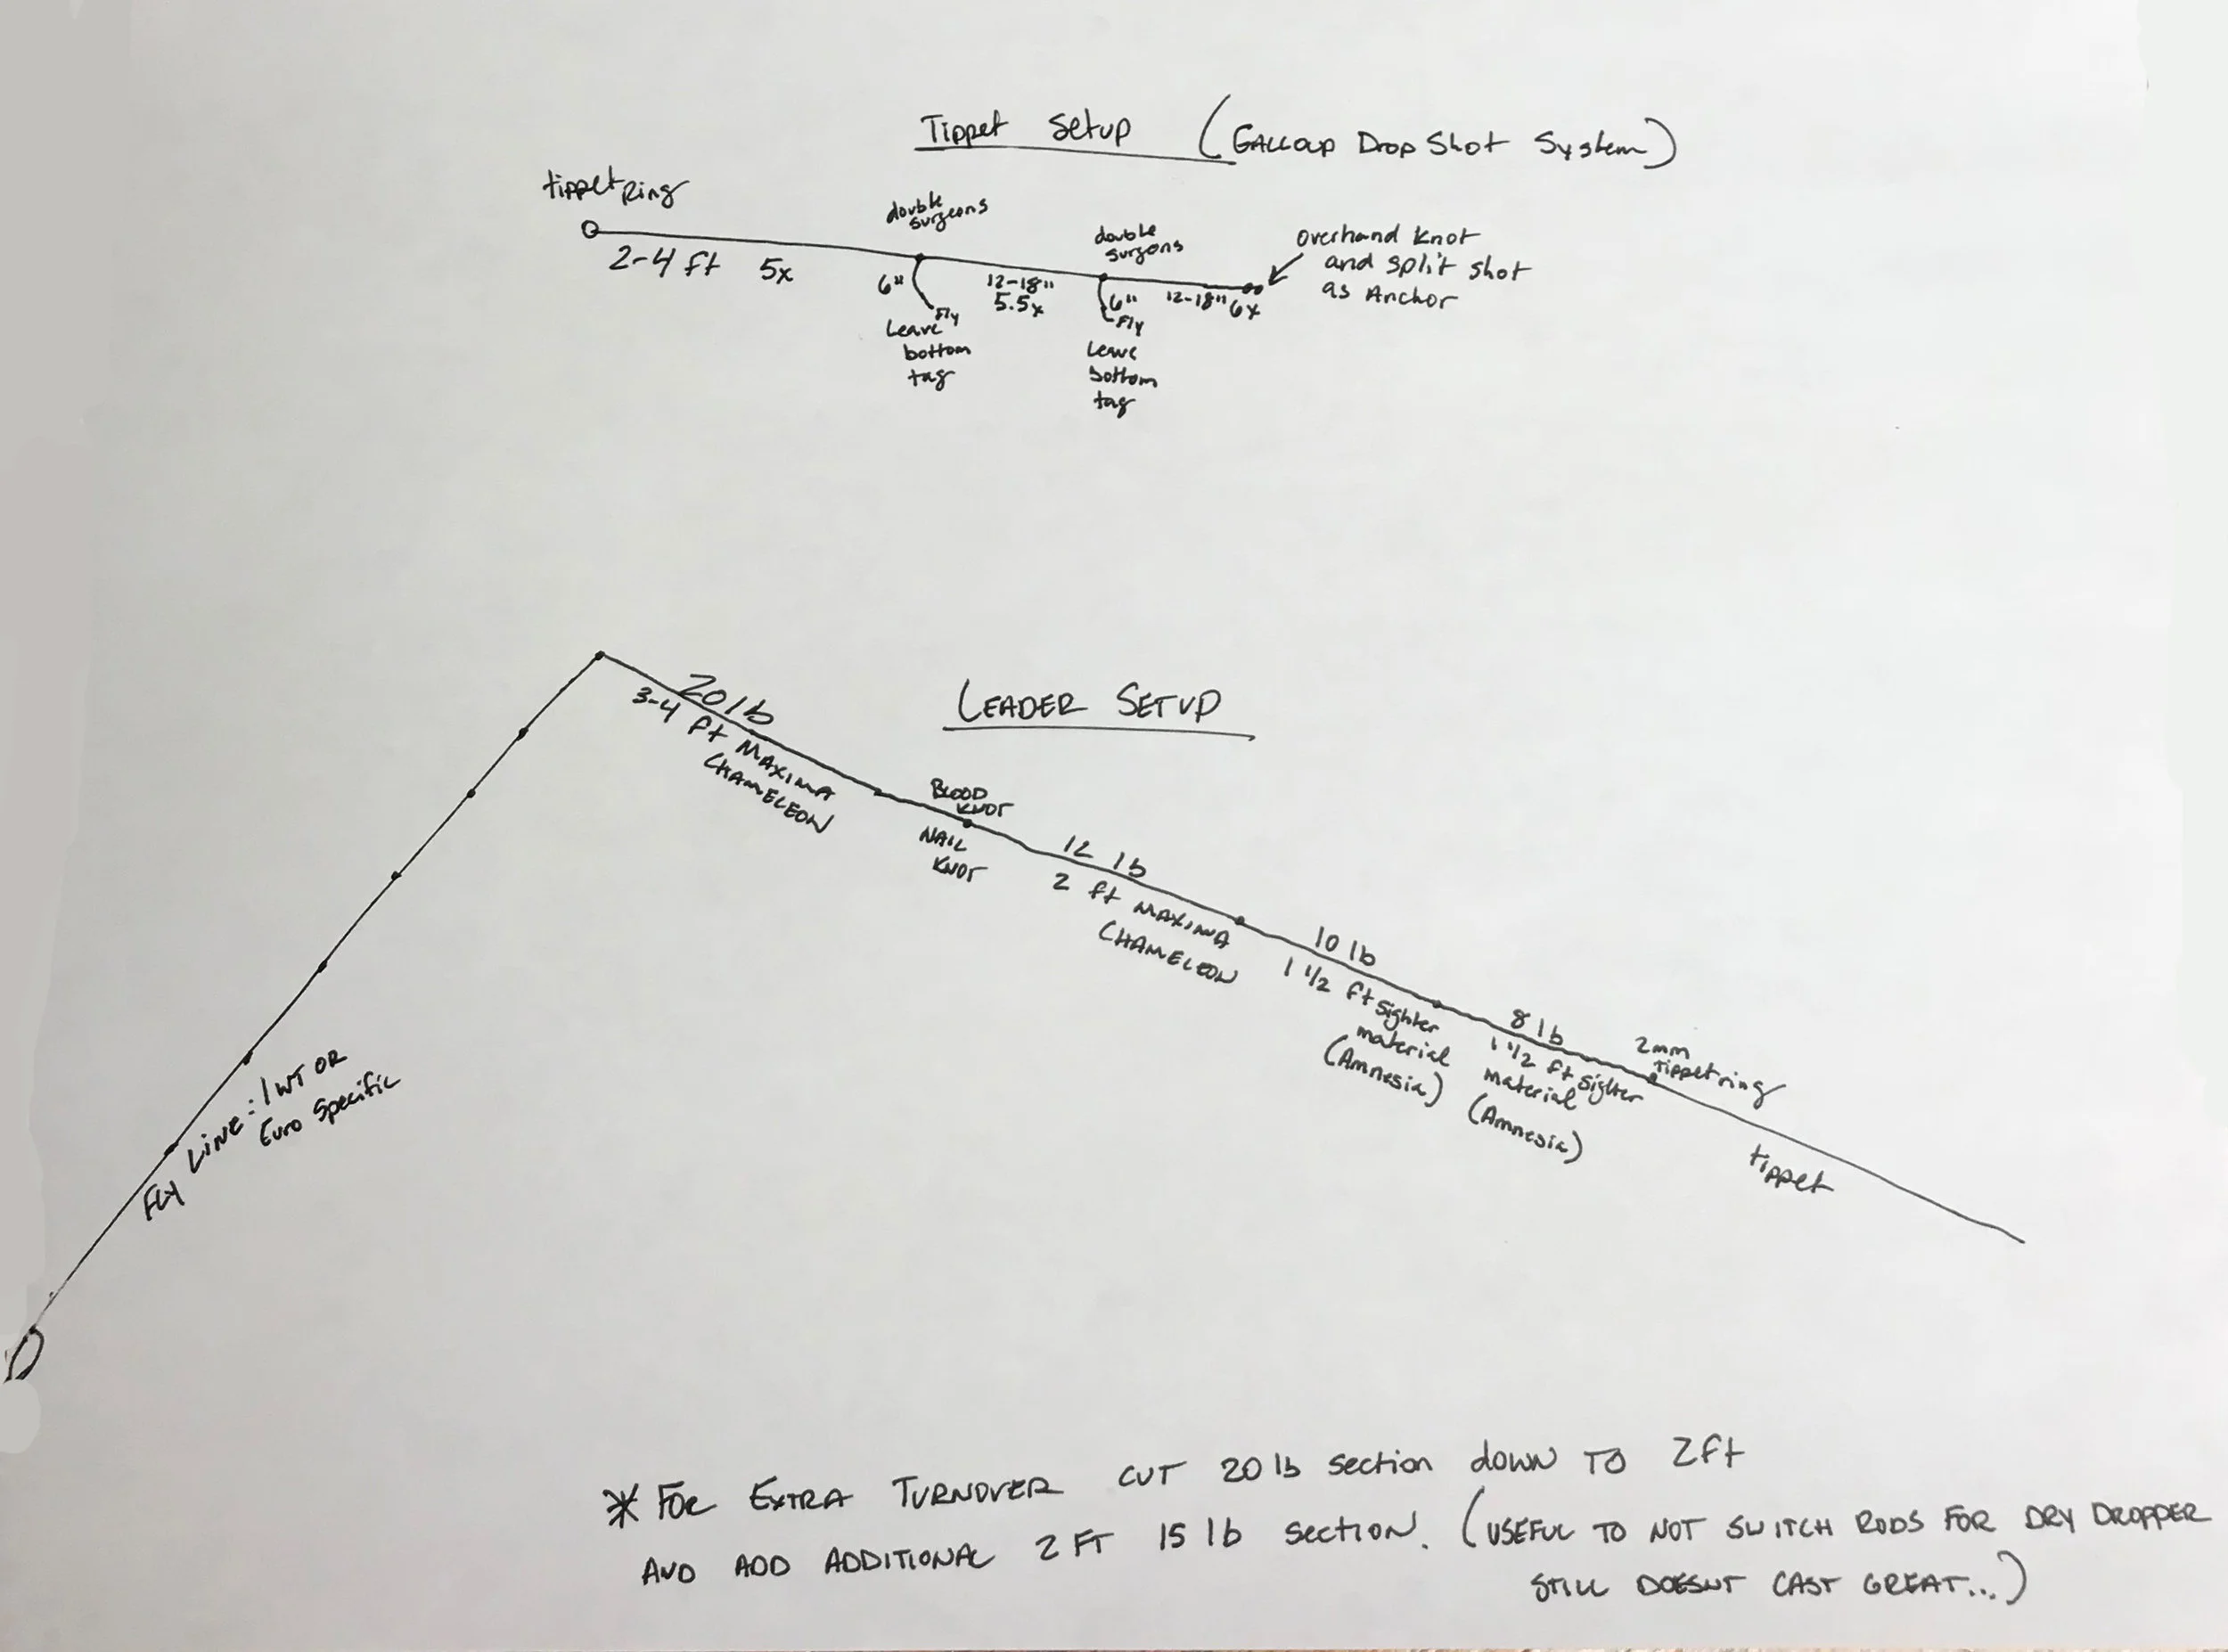 Tippet Setup (GALLOUP Drop Shot System)
tippet Ring
double
surgeons
double
surgons
overhand knot
and split shot
as Anchor
2-4 ft 5x
6"
Fly
Leave
bottom
tag
12-18"
5.5x
6"
Fly
Leave
bottom
tag
12-18" 6x
LEADER SETUP
20 lb
3-4 ft MAXIMA
CHAMELEON
BLOOD
KNOT
NAIL
KNOT
12 lb
2 ft MAXIMA
CHAMELEON
10 lb
1 1/2 ft sighter
material
(Amnesia)
8 lb
1 1/2 ft sighter
material
(Amnesia)
2mm
tippet ring
tippet
FLY LINE: 1 WT OR
Euro Specific
* FOR EXTRA TURNOVER CUT 20 lb section down TO 2ft
AND ADD ADDITIONAL 2 FT 15 lb section. (USEFUL TO NOT SWITCH RODS FOR DRY DROPPER
STILL DOESNT CAST GREAT...)